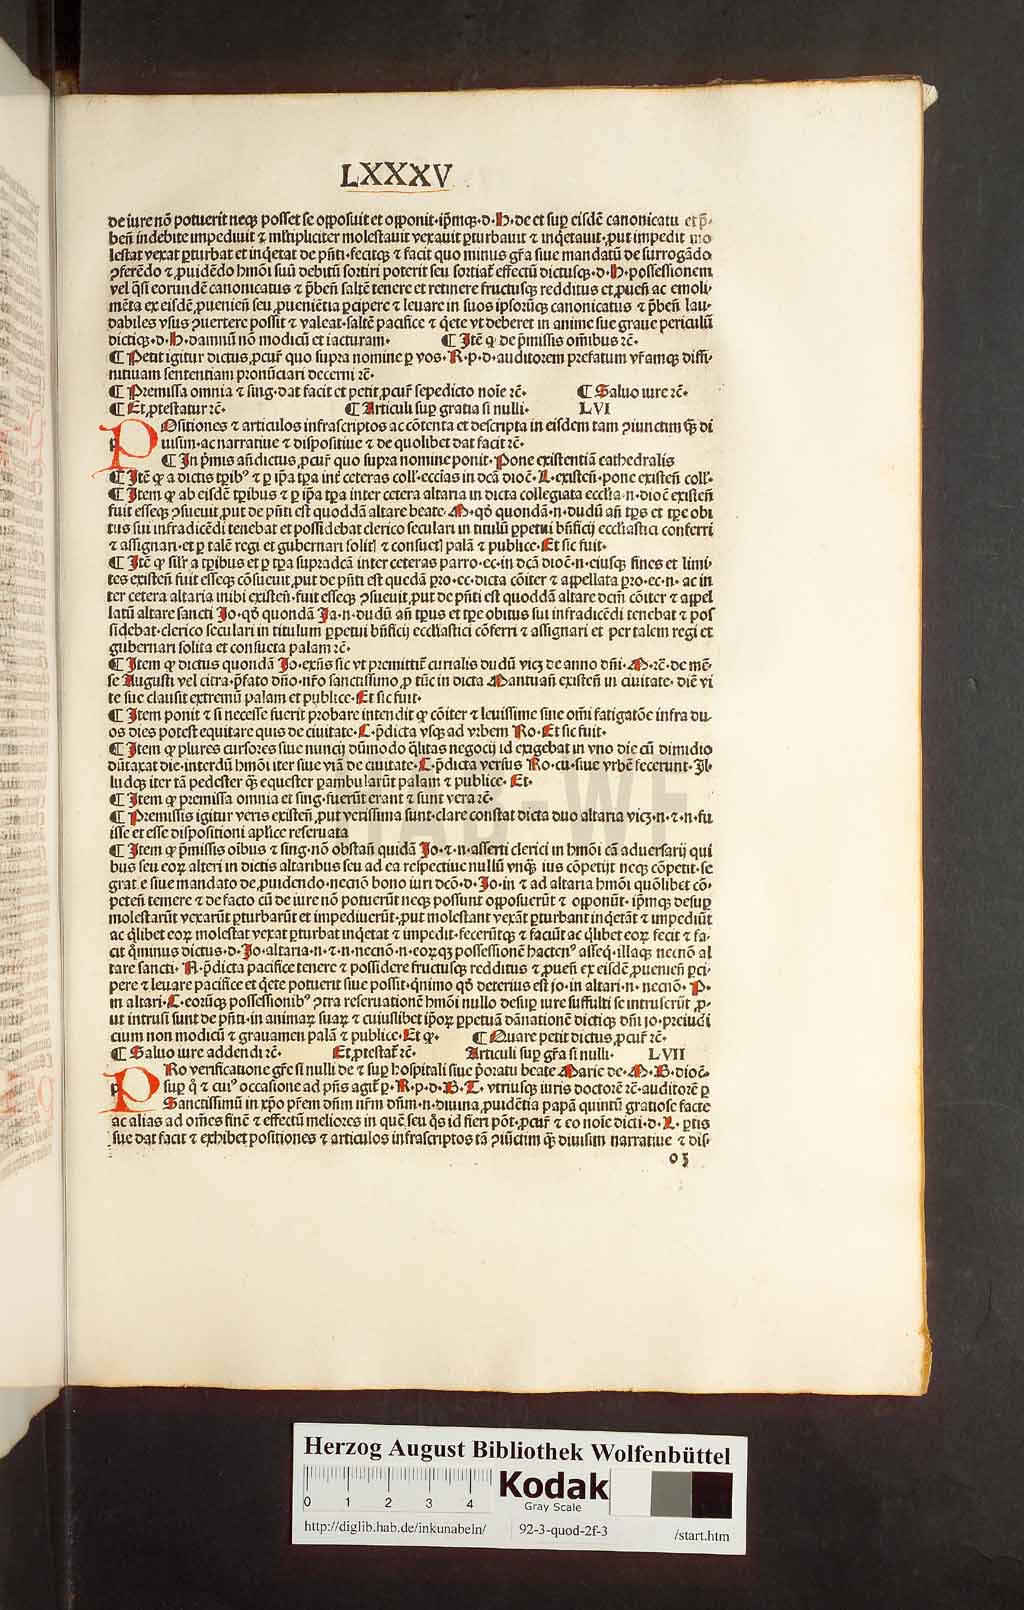 LXXXV
de iure nō potuerit neqꝫ posset se opposuit et opponit·ip̄mqꝫ·d·H·de et sup eisdē canonicatu et p̄-
ben̄ indebite impediuit ⁊ mltipliciter molestauit vexauit ꝑturbauit ⁊ inq̇etauit·ꝓut impedit mo
lestat vexat ꝑturbat et inq̇etat de pn̄ti·fecitqꝫ ⁊ facit quo minus gr̄a siue mandatū de surrogādo
ꝯferēdo ⁊ ꝓuidēdo hmōi suū debitū sortiri poterit seu sortiat̄ effectū dictusqꝫ·d·H·possessionem
vel q̄si eorundē canonicatus ⁊ p̄ben̄ saltē tenere et retinere fructusqꝫ redditus et ꝓuen̄ ac emoli-
mēta ex eisdē ꝓuenien̄ seu ꝓueniētia ꝑcipere ⁊ leuare in suos ipsorūqꝫ canonicatus ⁊ p̄ben̄ lau-
dabiles vsus ꝯuertere possit ⁊ valeat·saltē pacifice ⁊ q̇ete vt deberet in anime sue graue periculū
dictiqꝫ·d·H·damnū nō modicū et iacturam· ¶ Itē ꝙ de p̄missis om̄ibus ⁊c̄·
¶ Petit igitur dictus ꝓcur̄ quo supra nomine ꝑ vos·R·p·d·auditorem prefatum vr̄amqꝫ diffi-
nitiuam sententiam pronūctari decerni ⁊c̄·
¶ Premissa omnia ⁊ sing·dat facit et petit ꝓcur̄ sepedicto noīe ⁊c̄· ¶ Saluo iure ⁊c̄·
¶ Et ꝓtestatur ⁊c̄· ¶ Articuli sup gratia si nulli· LVI
POsitiones ⁊ articulos infrascriptos ac cōtenta et descripta in eisdem tam ꝯiunctim q̄ꝫ di
uisim·ac narratiue ⁊ dispositiue ⁊ de quolibet dat facit ⁊c̄·
¶ In p̄mis an̄dictus ꝓcur̄ quo supra nomine ponit·Pone existentiā cathedralis
¶ Itē ꝙ a dictis tp̄ibꝰ ⁊ ꝑ ip̄a tp̄a int̄ ceteras coll·eccīas in dcā dioc̄·L·existen̄·pone existen̄ coll·
¶ Item ꝙ ab eisdē tp̄ibus ⁊ ꝑ ip̄a tp̄a inter cetera altaria in dicta collegiata eccl̄ia·n·dioc̄ existen̄
fuit esseqꝫ ꝯsueuit ꝓut de pn̄ti est quoddā altare beate·M·qd̄ quondā·n·dudū an̄ tp̄s et tp̄e obi
tus sui infradicēdi tenebat et possidebat clerico seculari in titulū ꝑpetui bn̄ficij eccl̄iastici conferri
⁊ assignari·et ꝑ talē regi et gubernari solit̄ ⁊ consuet̄ palā ⁊ publice·Et sic fuit·
¶ Itē ꝙ sil̄r a tp̄ibus et ꝑ tp̄a supradcā inter ceteras parro·ec·in dcā dioc̄·n·eiusqꝫ fines et limi-
tes existen̄ fuit esseqꝫ cōsueuit ꝓut de pn̄ti est quedā ꝑro·ec·dicta cōiter ⁊ appellata ꝑro·ec·n·ac in
ter cetera altaria inibi existen̄·fuit esseqꝫ ꝯsueuit ꝓut de pn̄ti est quoddā altare dcm̄ cōiter ⁊ appel
latū altare sancti Jo·qd̄ quondā Ja·n·dudū an̄ tp̄us et tp̄e obitus sui infradicēdi tenebat ⁊ pos
sidebat·clerico seculari in titulum ꝑpetui bn̄ficij eccl̄iastici cōferri ⁊ assignari et per talem regi et
gubernari solita et consueta palam ⁊c̄·
¶ Item ꝙ dictus quondā Jo·exn̄s sic vt premittit̄ curialis dudū vicꝫ de anno dn̄i·M·⁊c̄·de mē-
se Augusti vel citra·p̄fato dn̄o·nr̄o sanctissimo ꝓ tūc in dicta Mantuan̄ existen̄ in ciuitate·diē vi
te sue clausit extremū palam et publice·Et sic fuit·
¶ Item ponit ⁊ si necesse fuerit probare intendit ꝙ cōiter ⁊ leuissime siue om̄i fatigatōe infra du-
os dies potest equitare quis de ciuitate·L·p̄dicta vsqꝫ ad vrbem Ro·Et sic fuit·
¶ Item ꝙ plures cursores siue nuncij dūmodo q̄litas negocij id exigebat in vno die cū dimidio
dūtaxat die·interdū hmōi iter siue viā de ciuitate·L·p̄dicta versus Ro·cu·siue vrbē fecerunt·Il-
ludqꝫ iter tā pedester q̄ꝫ equester ꝑambularūt palam ⁊ publice·Et·
¶ Item ꝙ premissa omnia et sing·fuerūt erant ⁊ sunt vera ⁊c̄·
¶ Premissis igitur veris existen̄ ꝓut verissima sunt·clare constat dicta duo altaria vicꝫ·n·⁊·n·fu
isse et esse dispositioni ap̄lice reseruata
¶ Item ꝙ p̄missis oībus ⁊ sing·nō obstan̄ quidā Jo·⁊·n·asserti clerici in hmōi cā aduersarij qui
bus seu eoꝝ alteri in dictis altaribus seu ad ea respectiue nullū vnqꝫ ius cōpetijt neqꝫ cōpetit·se
grat e siue mandato de ꝓuidendo·necnō bono iuri dcō·d·Jo·in ⁊ ad altaria hmōi quōlibet cō-
peten̄ temere ⁊ de facto cū de iure nō potuerūt neqꝫ possunt opposuerūt ⁊ opponūt·ip̄mqꝫ desup
molestarūt vexarūt ꝑturbarūt et impediuerūt·ꝓut molestant vexāt ꝑturbant inq̇etāt ⁊ impediūt
ac q̄libet eoꝝ molestat vexat ꝑturbat inq̇etat ⁊ impedit·fecerūtqꝫ ⁊ faciūt ac q̄libet eoꝝ fecit ⁊ fa-
cit q̄minus dictus·d·Jo·altaria·n·⁊·n·necnō·n·eoꝝqꝫ possessionē hactenꝰ asseq̄·illaqꝫ necnō al
tare sancti·N·p̄dicta pacifice tenere ⁊ possidere fructusqꝫ redditus ⁊ ꝓuen̄ ex eisdē ꝓuenien̄ ꝑci-
pere ⁊ leuare pacifice et q̇ete potuerit siue possit·q̇nimo qd̄ deterius est jo·in altari·n·necnō·P·
in altari·L·eorūqꝫ possessionibꝰ ꝯtra reseruationē hmōi nullo desup iure suffulti se intruserūt ꝓ-
ut intrusi sunt de pn̄ti·in animaꝝ suaꝝ ⁊ cuiuslibet ip̄oꝝ ꝑpetuā dānationē dictiqꝫ dn̄i jo·preiudi
cium non modicū ⁊ grauamen palā ⁊ publice·Et ꝙ· ¶ Quare petit dictus ꝓcur̄ ⁊c̄·
¶ Saluo iure addendi ⁊c̄· Et ꝓtestat̄ ⁊c̄· Articuli sup gr̄a si nulli· LVII
PRo verificatione gr̄e si nulli de ⁊ sup hospitali siue p̄oratu beate Marie de·M·B·dioc̄·
sup q̄ ⁊ cuiꝰ occasione ad pn̄s agit̄ ꝑ·R·p·d·B·T·vtriusqꝫ iuris doctorē ⁊c̄·auditorē ꝑ
Sanctissimū in xp̄o pr̄em dn̄m nr̄m dn̄m·n·diuina ꝓuidētia papā quintū gratiose facte
ac alias ad om̄es finē ⁊ effectū meliores in quē seu q̄s id fieri pōt·ꝓcur̄ ⁊ eo noīe dicti·d·L·ꝑtis
sue dat facit ⁊ exhibet positiones ⁊ articulos infrascriptos tā ꝯiūctim q̄ꝫ diuisim narratiue ⁊ dis-
o3
Herzog August Bibliothek Wolfenbüttel
0 1 2 3 4
Kodak
Gray Scale
http://diglib.hab.de/inkunabeln/ 92-3-quod-2f-3 /start.htm